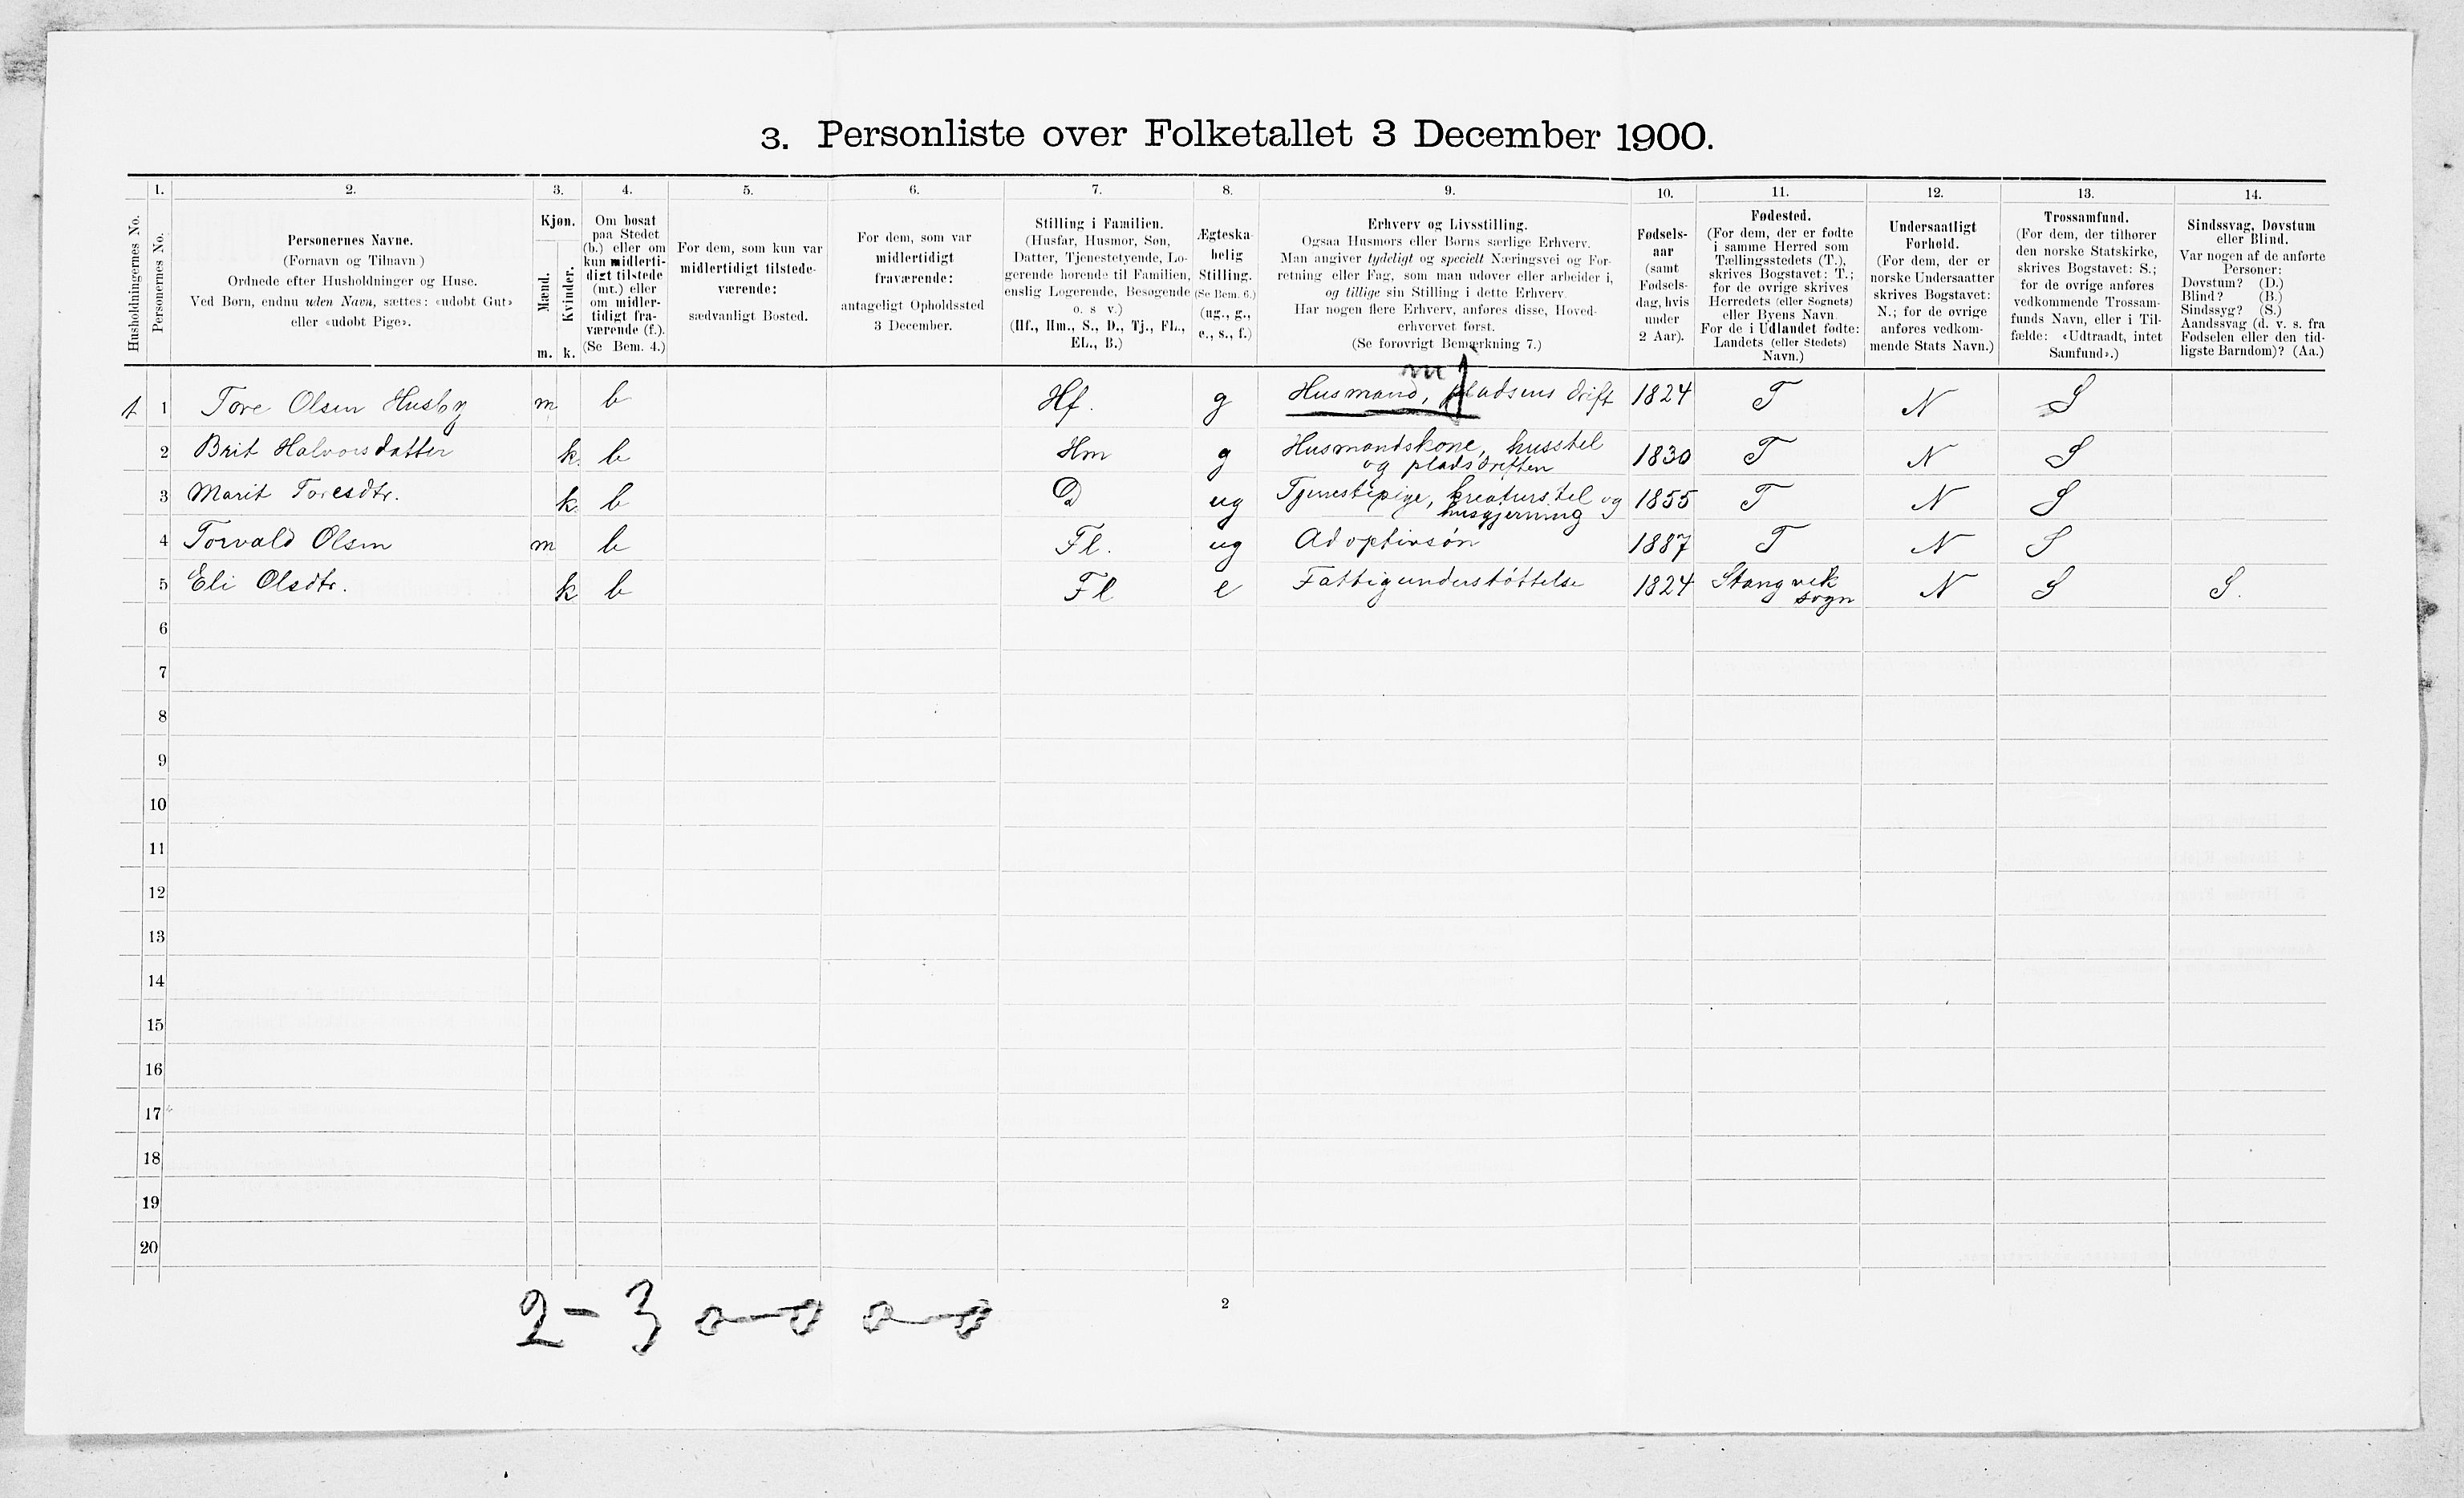 3. Personliste over Folketallet 3 December 1900.
Husholdningernes No.
1.
Personernes No.
2.
Personernes Navne.
(Fornavn og Tilnavn.)
Ordnede efter Husholdninger og Huse.
Ved Børn, endnu uden Navn, sættes: «udøbt Gut»
eller «udøbt Pige».
3.
Kjøn.
Mænd.
m.
Kvinder.
k.
4.
Om bosat
paa Stedet
(b.) eller om
kun midlerti-
digt tilstede
(mt.) eller
om midler-
tidigt fra-
værende (f.).
(Se Bem. 4.)
5.
For dem, som kun var
midlertidigt tilstede-
værende:
sædvanligt Bosted.
6.
For dem, som var
midlertidigt
fraværende:
antageligt Opholdssted
3 December.
7.
Stilling i Familien.
(Husfar, Husmor, Søn,
Datter, Tjenestetyende, Lo-
gerende hørende til Familien,
enslig Logerende, Besøgende
o. s v.)
(Hf., Hm., S., D., Tj., FL.,
EL., B.)
8.
Ægteska-
belig
Stilling.
(Se Bem. 6.)
(ug., g.,
e., s., f.)
9.
Erhverv og Livsstilling.
Ogsaa Husmors eller Børns særlige Erhverv.
Man angiver tydeligt og specielt Næringsvei og For-
retning eller Fag, som man udøver eller arbeider i,
og tillige sin Stilling i dette Erhverv.
Har nogen flere Erhverv, anføres disse, Hoved-
erhvervet først.
(Se forøvrigt Bemærkning 7.)
10.
Fødsels-
aar
(samt
Fødsels-
dag, hvis
under
2 Aar).
11.
Fødested.
(For dem, der er fødte
i samme Herred som
Tællingsstedets (T.),
skrives Bogstavet: T.;
for de øvrige skrives
Herredets (eller Sognets)
eller Byens Navn.
For de i Udlandet fødte:
Landets (eller Stedets)
Navn.)
12.
Undersaatligt
Forhold.
(For dem, der er
norske Undersaatter
skrives Bogstavet:
N.; for de øvrige
anføres vedkom-
mende Stats Navn.)
13.
Trossamfund.
(For dem, der tilhører
den norske Statskirke,
skrives Bogstavet: S.;
for de øvrige anføres
vedkommende Trossam-
funds Navn, eller i Til-
fælde: «Udtraadt, intet
Samfund».)
14.
Sindssvag, Døvstum
eller Blind.
Var nogen af de anførte
Personer:
Døvstum? (D.)
Blind? (B.)
Sindssyg? (S.)
Aandssvag (d. v. s. fra
Fødselen eller den tid-
ligste Barndom)? (Aa.)
mj
1 1 Tore Olsen Husby m b Hf. g Husmand, pladsens drift 1824 T N S
2 Brit Halvorsdatter k. b Hm g Husmandskone, husstel
og pladsdriften 1830 T N S
3 Marit Toresdtr. k b D ug Tjenestepige, kreaturstel og
husgjerning 1855 T N S
4 Torvald Olsen m b Fl. ug Adoptivsøn 1887 T N S
5 Eli Olsdtr. k b Fl e Fattigunderstøttelse 1824 Stangvik
sogn N S S.
6
7
8
9
10
11
12
13
14
15
16
17
18
19
20
2 - 3 0-0 0-0
2